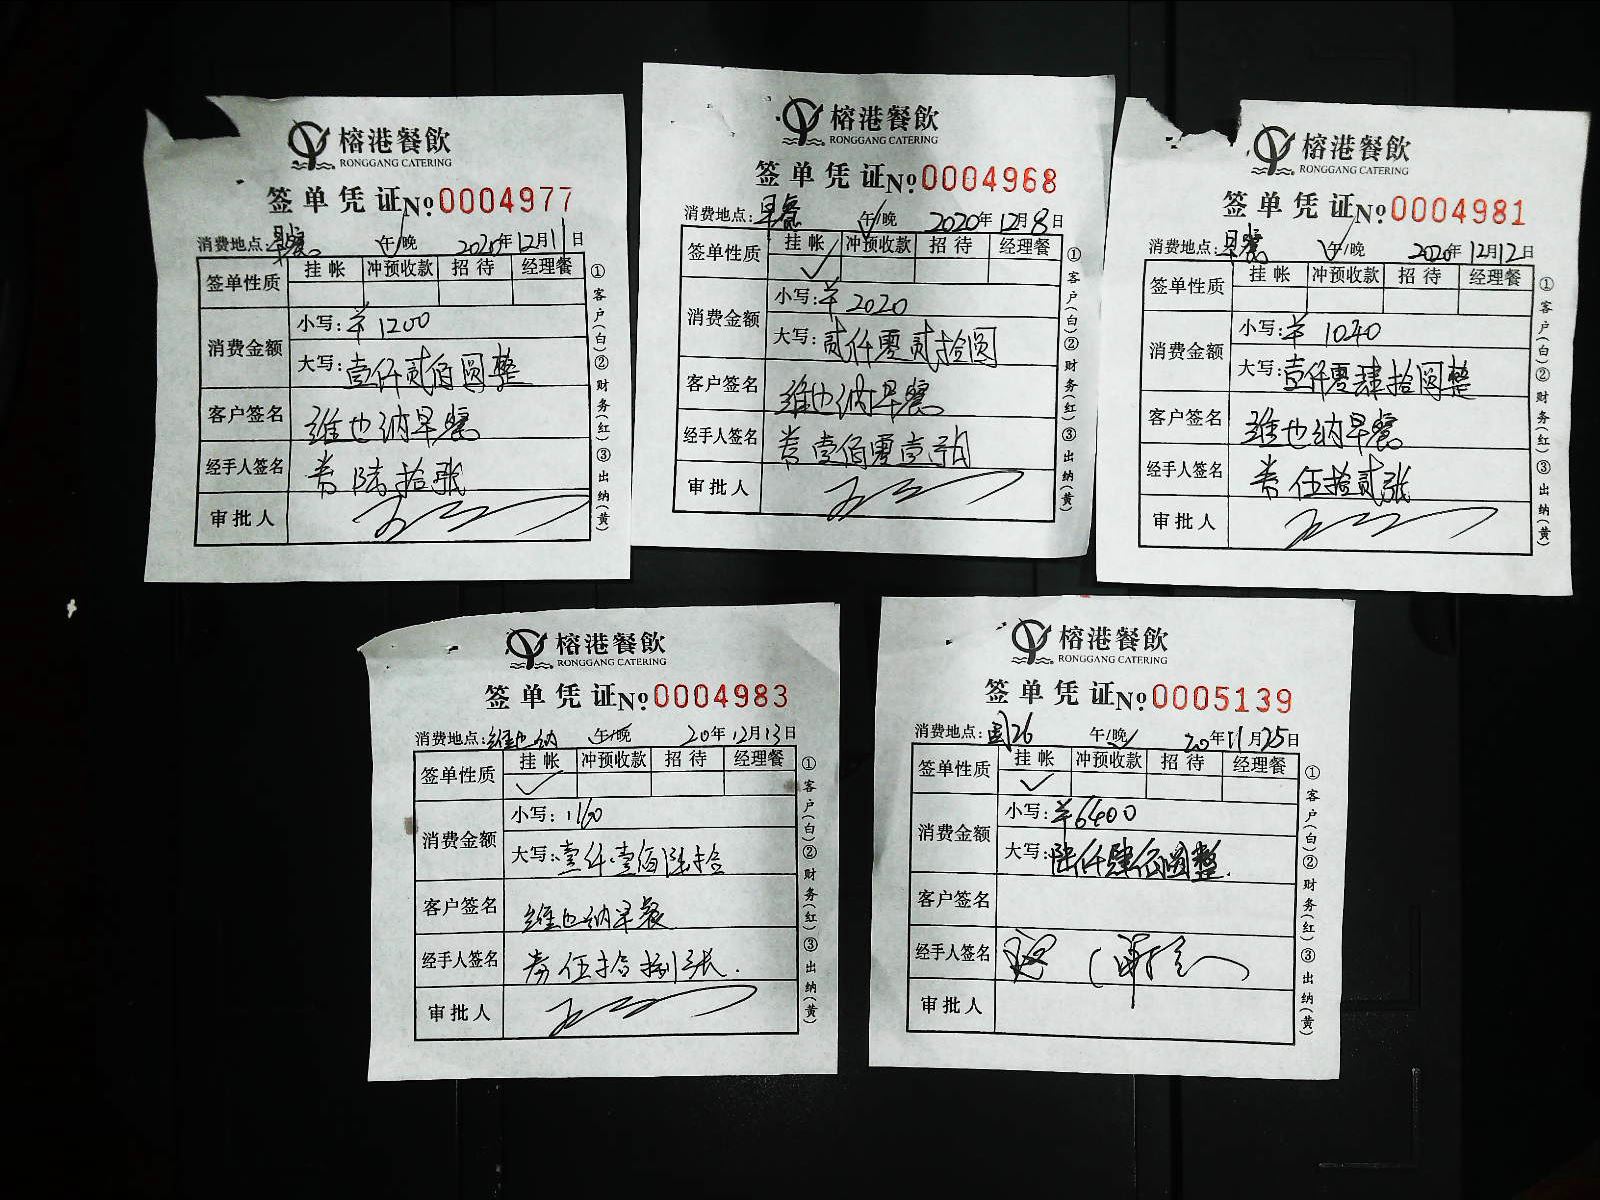 榕港餐飲
RONGGANG CATERING
签单凭证№0004977
消费地点:早餐 午/晚 2020年12月11日
签单性质 挂帐 冲预收款 招待 经理餐
消费金额 小写:¥1200
大写:壹仟贰佰圆整
客户签名 维也纳早餐
经手人签名 券陆拾张
审批人
①客户(白)②财务(红)③出纳(黄)
榕港餐飲
RONGGANG CATERING
签单凭证№0004968
消费地点:早餐 午/晚 2020年12月8日
签单性质 挂帐 冲预收款 招待 经理餐
消费金额 小写:¥2020
大写:贰仟零贰拾圆
客户签名 维也纳早餐
经手人签名 券壹佰零壹张
审批人
①客户(白)②财务(红)③出纳(黄)
榕港餐飲
RONGGANG CATERING
签单凭证№0004981
消费地点:早餐 午/晚 2020年12月12日
签单性质 挂帐 冲预收款 招待 经理餐
消费金额 小写:¥1040
大写:壹仟零肆拾圆整
客户签名 维也纳早餐
经手人签名 券伍拾贰张
审批人
①客户(白)②财务(红)③出纳(黄)
榕港餐飲
RONGGANG CATERING
签单凭证№0004983
消费地点:维也纳 午/晚 20年12月13日
签单性质 挂帐 冲预收款 招待 经理餐
消费金额 小写:1160
大写:壹仟壹佰陆拾
客户签名 维也纳早餐
经手人签名 券伍拾捌张.
审批人
①客户(白)②财务(红)③出纳(黄)
榕港餐飲
RONGGANG CATERING
签单凭证№0005139
消费地点:26 午/晚 20年11月25日
签单性质 挂帐 冲预收款 招待 经理餐
消费金额 小写:¥6400
大写:陆仟肆佰圆整.
客户签名
经手人签名
审批人
①客户(白)②财务(红)③出纳(黄)